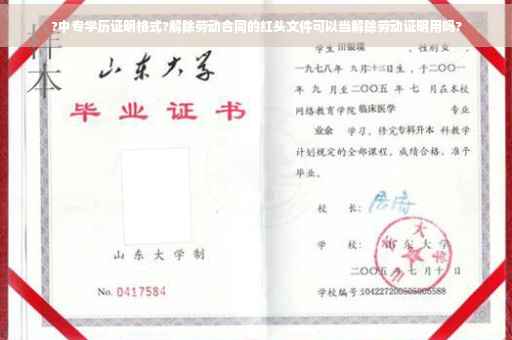 ?中专学历证明格式?解除劳动合同的红头文件可以当解除劳动证明用吗?
样本
山东大学
毕业证书
山东大学制
No. 0417584
学生 田淑瑞 ，性别 女 ，
一九七八年 九月十三日生，于二〇〇一
年 九 月至二〇〇五 年 七 月在本校
网络教育学院 临床医学 专业
业余 学习，修完专科升本 科教学
计划规定的全部课程，成绩合格，准予
毕业。
校 长：
学 校： 山东大学
二〇〇五年 七月十日
学校编号:104227200505005588